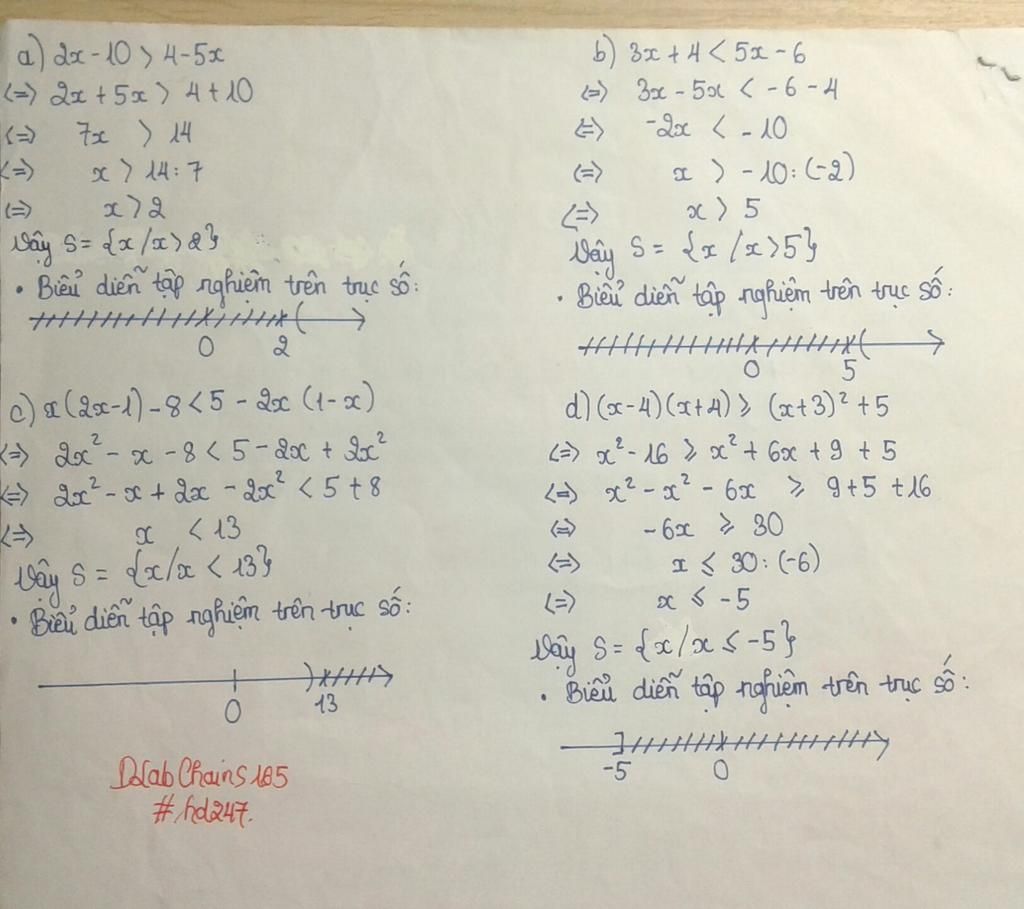 a) 2x - 10 > 4 - 5x
<=> 2x + 5x > 4 + 10
<=> 7x > 14
<=> x > 14 : 7
<=> x > 2
Vậy S = {x / x > 2}
• Biểu diễn tập nghiệm trên trục số:
0 2
b) 3x + 4 < 5x - 6
<=> 3x - 5x < -6 - 4
<=> -2x < -10
<=> x > -10 : (-2)
<=> x > 5
Vậy S = {x / x > 5}
• Biểu diễn tập nghiệm trên trục số:
0 5
c) x(2x-1) - 8 < 5 - 2x (1-x)
<=> 2x² - x - 8 < 5 - 2x + 2x²
<=> 2x² - x + 2x - 2x² < 5 + 8
<=> x < 13
Vậy S = {x / x < 13}
• Biểu diễn tập nghiệm trên trục số:
0 13
d) (x-4)(x+4) ≥ (x+3)² + 5
<=> x² - 16 ≥ x² + 6x + 9 + 5
<=> x² - x² - 6x ≥ 9 + 5 + 16
<=> -6x ≥ 30
<=> x ≤ 30 : (-6)
<=> x ≤ -5
Vậy S = {x / x ≤ -5}
• Biểu diễn tập nghiệm trên trục số:
-5 0
#hd247.